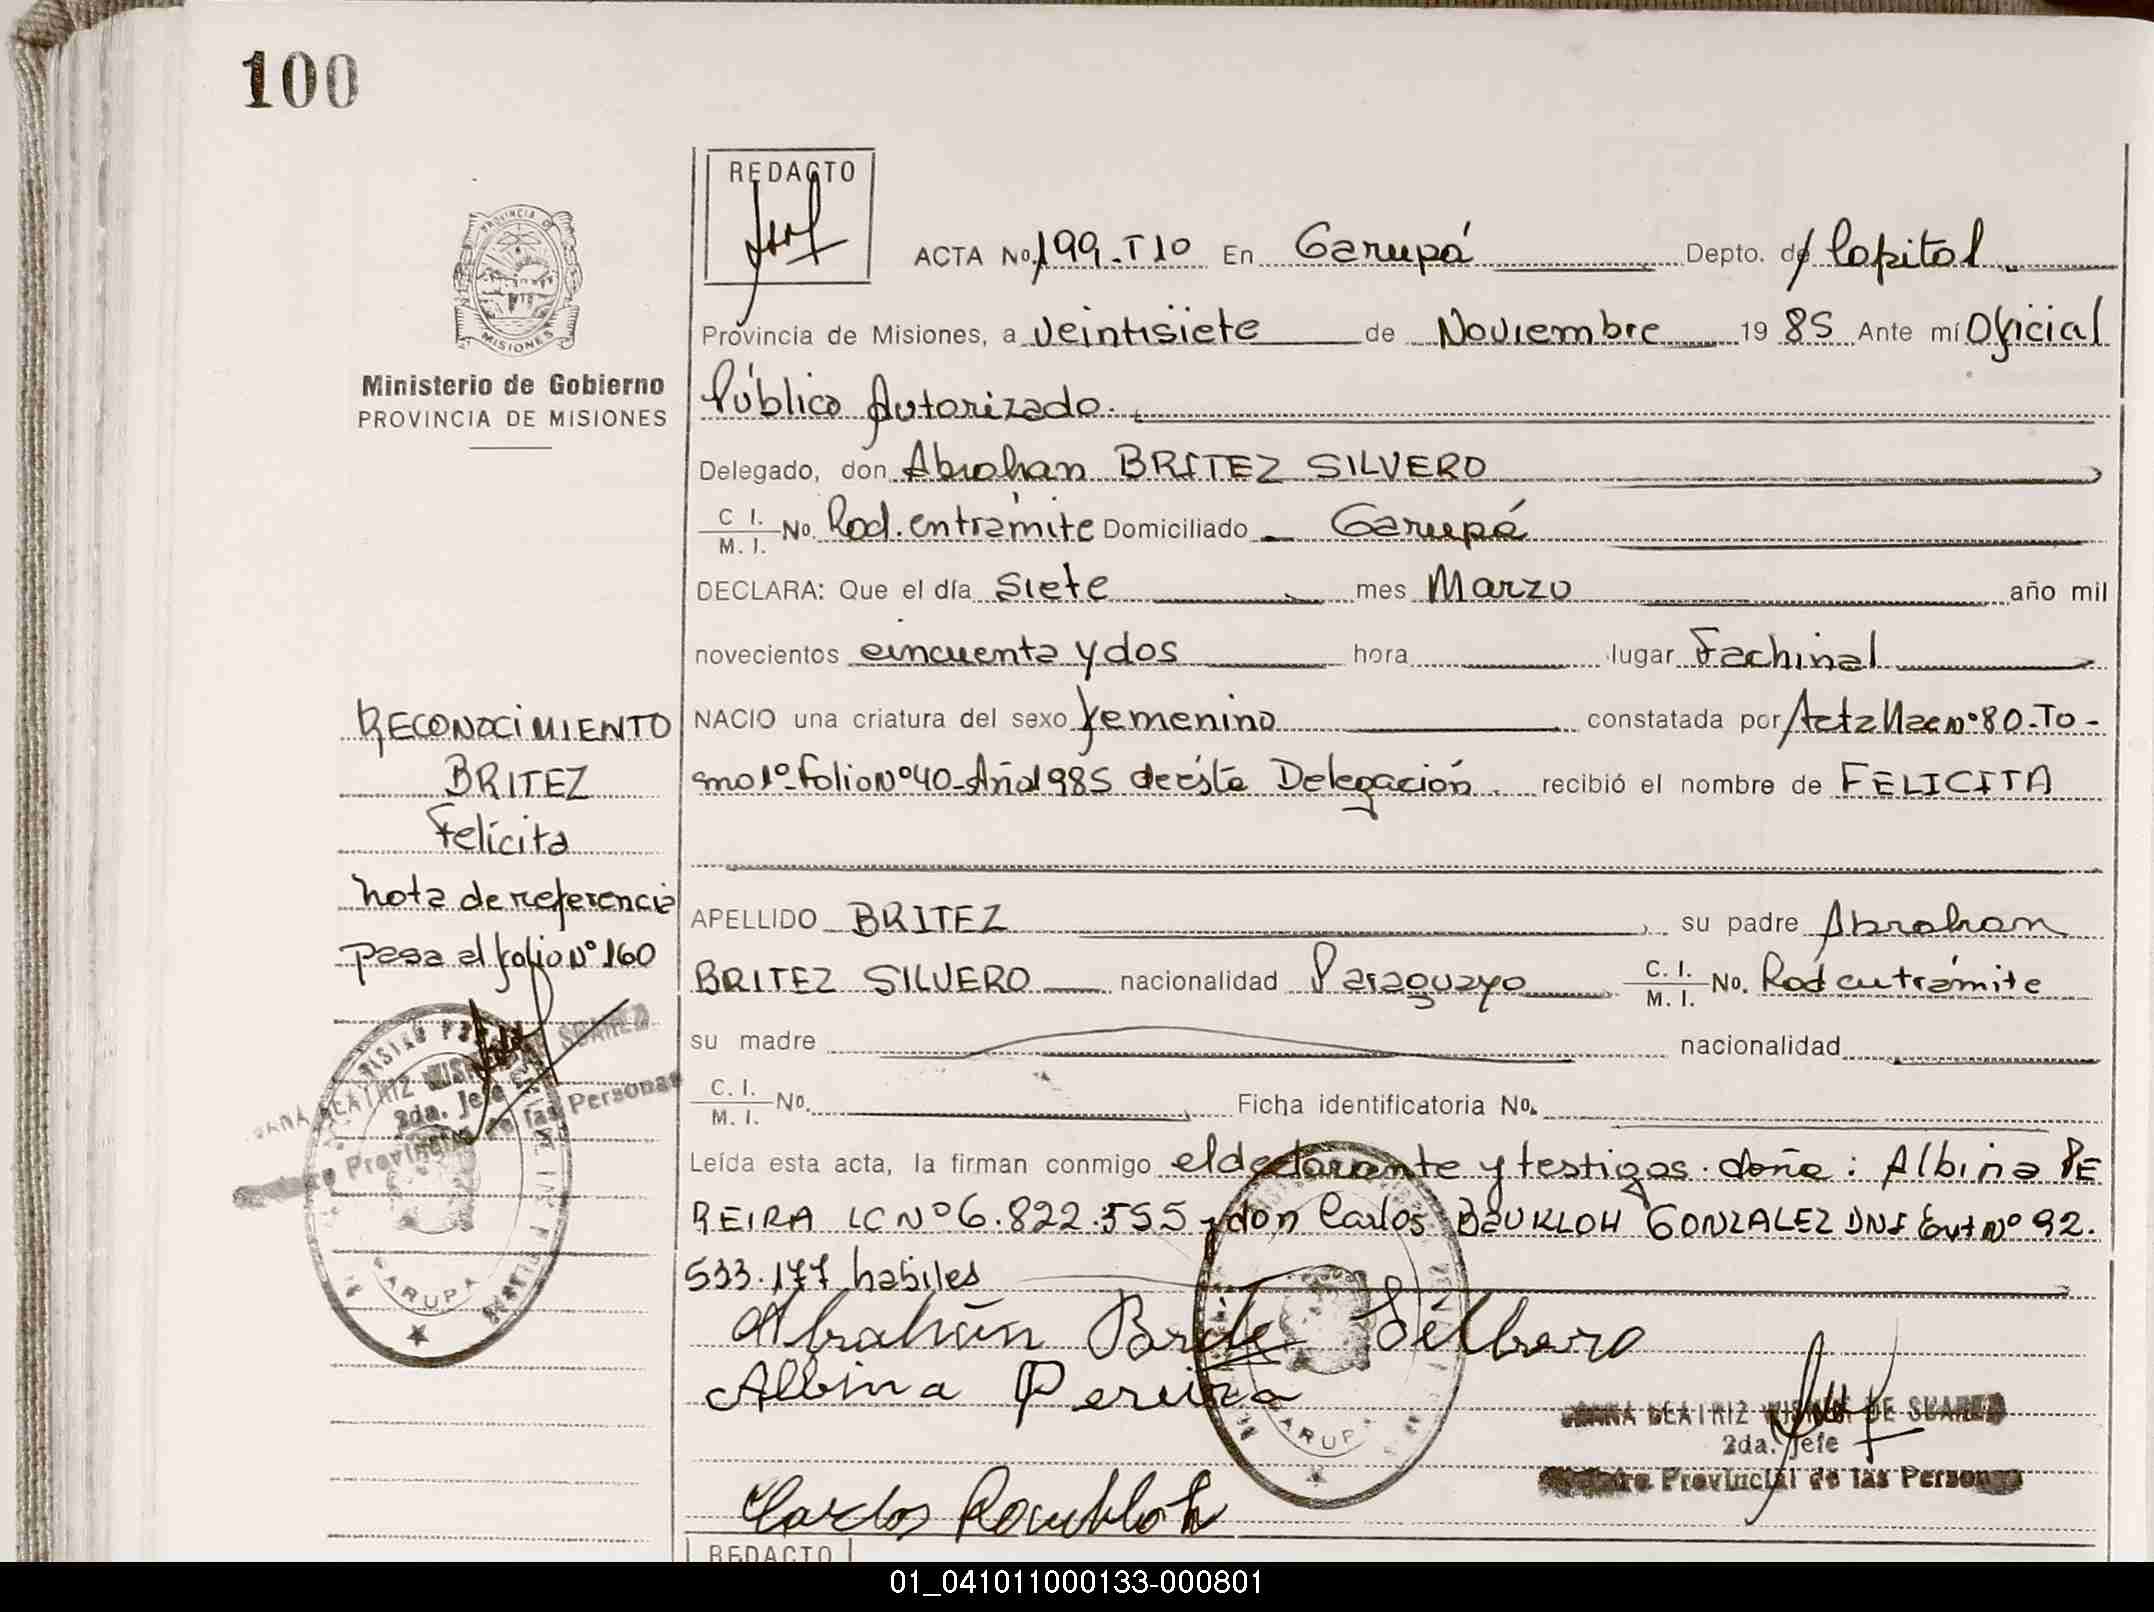 100
REDACTO
PROVINCIA DE
MISIONES
Ministerio de Gobierno
PROVINCIA DE MISIONES
ACTA No. 199.T10 En Garupá Depto. de Capital
Provincia de Misiones, a veintisiete de Noviembre 19 85 Ante mí Oficial
Público Autorizado.
Delegado, don Abrahan BRITEZ SILVERO
C I. M. I. No. Rad. en trámite Domiciliado Garupá
DECLARA: Que el día siete mes Marzo año mil
novecientos cincuenta y dos hora lugar Fachinal
NACIO una criatura del sexo femenino constatada por Acta Nac Nº 80-To-
mo 1º-Folio Nº 40-Año 1985 de ésta Delegación recibió el nombre de FELICITA
RECONOCIMIENTO
BRITEZ
Felícita
nota de referencia
pasa al folio Nº 160
APELLIDO BRITEZ su padre Abrahan
BRITEZ SILVERO nacionalidad Paraguayo C. I. M. I. No. Rad en trámite
su madre nacionalidad
C. I. M. I. No. Ficha identificatoria No.
Leída esta acta, la firman conmigo el declarante y testigos: doña: Albina PE
REIRA LC Nº 6.822.555 y don Carlos BAUKLOH GONZALEZ DNI Ext Nº 92.
533.177 habiles
Abrahán Brite Silbero
Albina Pereira
Carlos Baukloh
BEATRIZ DE SUAREZ
2da. Jefe
Provincial de las Personas
GARUPA
BEATRIZ SUAREZ
2da. Jefe
Provincial de las Personas
GARUPA
REDACTO
01_041011000133-000801